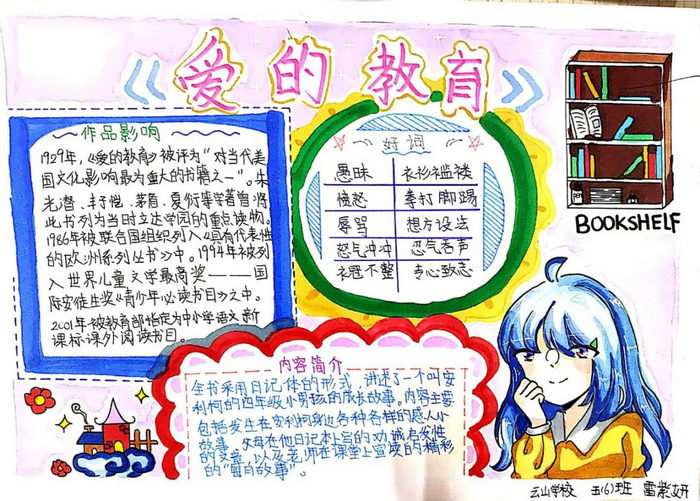 《爱的教育》
作品影响
1929年，《爱的教育》被评为“对当代美
国文化影响最为重大的书籍之一”。朱
光潜、丰子恺、茅盾、夏衍等学者曾将
此书列为当时立达学园的重点读物。
1986年被联合国组织列入《具有代表性
的欧洲系列丛书》中。1994年被列
入世界儿童文学最高奖———国
际安徒生奖《青少年必读书目》之中。
2001年被教育部指定为中小学语文新
课标课外阅读书目。
好词
愚昧 衣衫褴褛
愤怒 拳打脚踢
辱骂 想方设法
怒气冲冲 忍气吞声
衣冠不整 专心致志
BOOKSHELF
内容简介
全书采用日记体的形式，讲述了一个叫安
利柯的四年级小男孩的成长故事。内容主要
包括发生在安利柯身边各种各样的感人小
故事、父母在他日记本上写的劝诫启发性
的文章，以及老师在课堂上宣读的精彩
的“每月故事”。
云山学校 五(6)班 雷紫妍